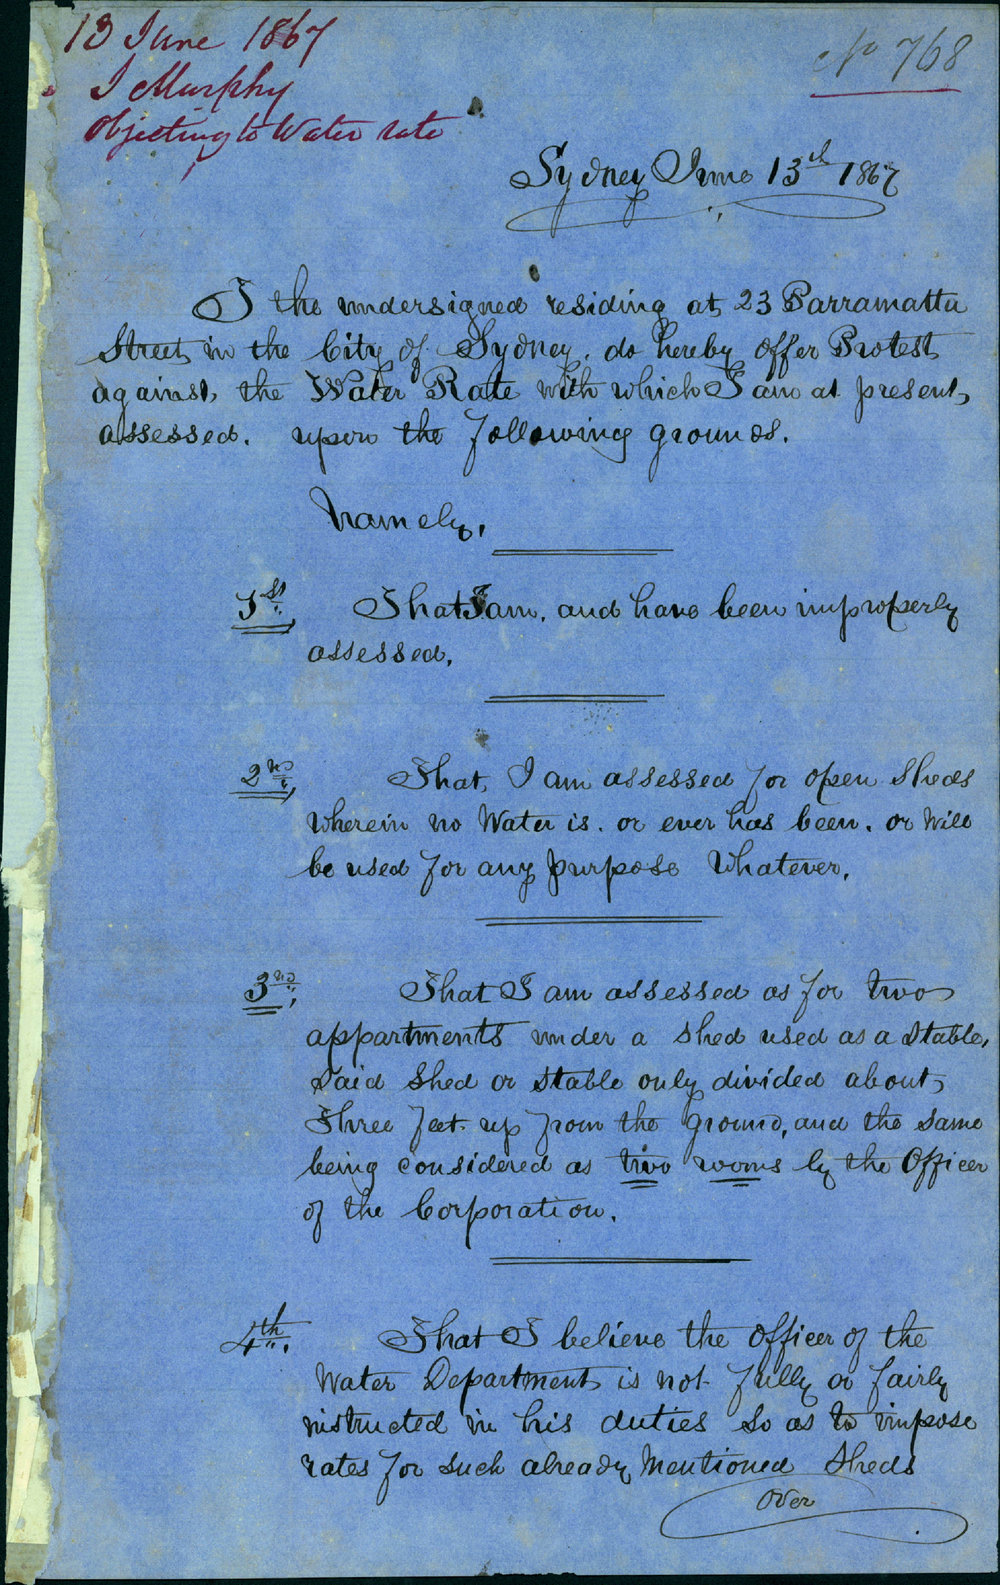 13 June 1867
J Murphy
Objecting to Water rate
No 768
Sydney June 13th 1867
I the undersigned residing at 23 Parramatta
Street, in the City of Sydney. do hereby offer Protest
against, the Water Rate with which I am at present,
assessed. upon the following grounds.
Namely,
1st, That I am, and have been improperly
assessed.
2nd, That, I am assessed for open Sheds
wherein no Water is. or ever has been. or will
be used for any purpose Whatever.
3rd, That I am assessed as for two
appartments under a shed used as a Stable,
Said Shed or Stable only divided about,
three feet up from the ground, and the same
being considered as two rooms by the Officer
of the Corporation.
4th. That I believe the Officer of the
Water Department, is not fully or fairly
instructed in his duties So as to impose
rates for such already Mentioned Sheds
Over